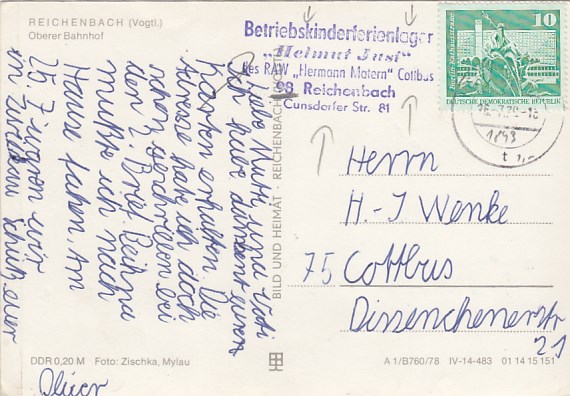 REICHENBACH (Vogtl.)
Oberer Bahnhof
Betriebskinderferienlager
„Helmut Just"
des RAW „Hermann Matern" Cottbus
98 Reichenbach
Cunsdorfer Str. 81
10
DEUTSCHE DEMOKRATISCHE REPUBLIK
Liebe Mutti und Vati
Ich habe eure
Karten erhalten. Die
Adresse habe ich doch
schon geschrieben bei
den Brief
mußte ich nach
Hause fahren. Am
25.7 wir
im
Oliver
Herrn
H.-J Wenke
75 Cottbus
Dissenchenerstr
21
BILD UND HEIMAT · REICHENBACH
DDR 0,20 M Foto: Zischka, Mylau
A 1/B760/78 IV-14-483 01 14 15 151